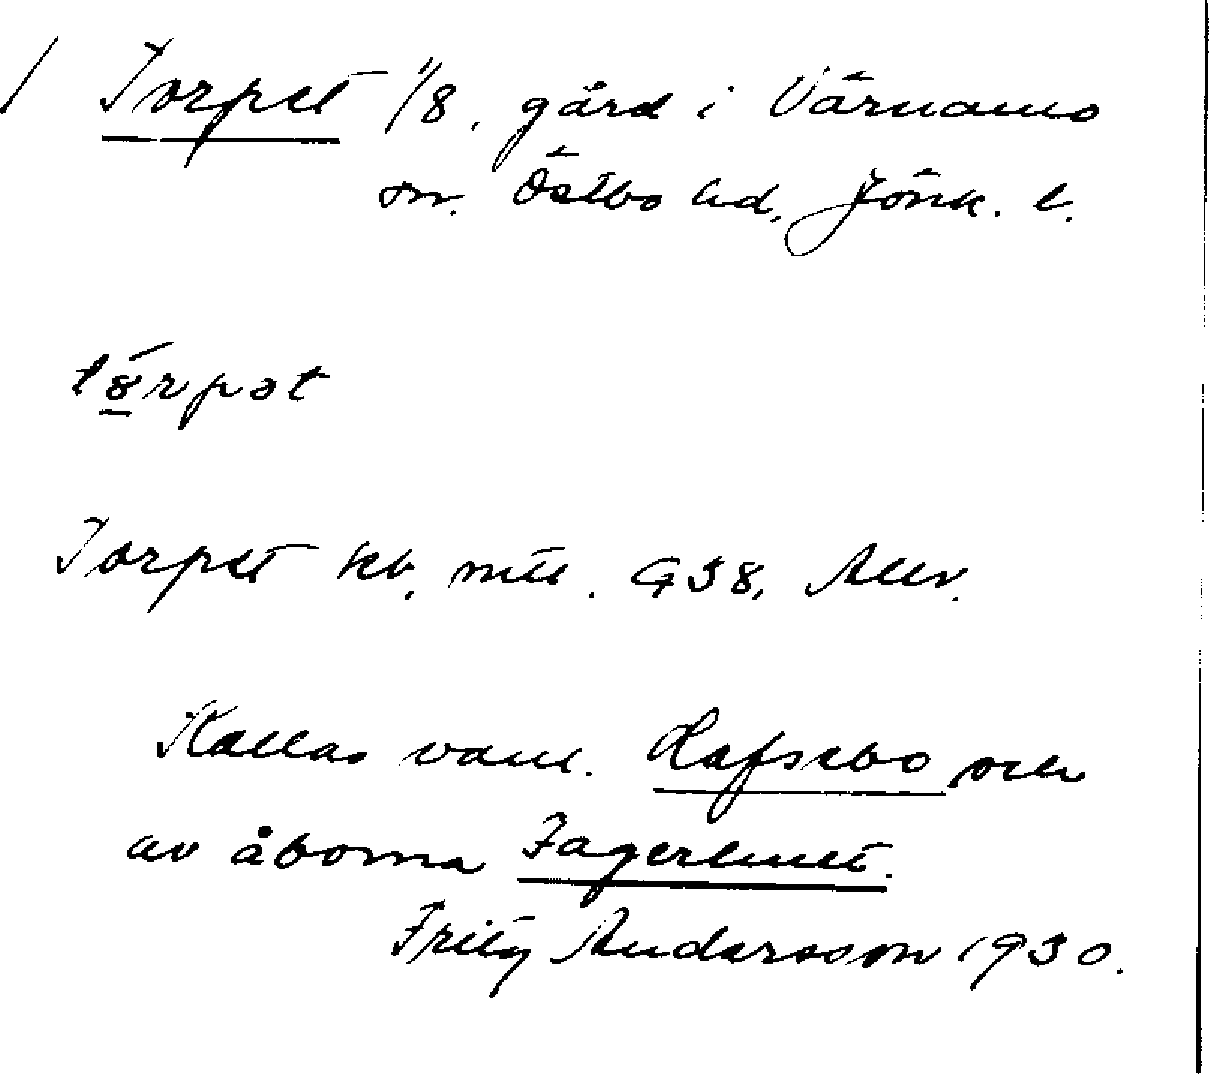 / Torpet 1/8. gård i Värnamo
sn. Östbo hd, Jönk. l.
tȣ́rpət
Torpet kb, mtl. 938, Allv.
Kallas vanl. Hafsebo och
av åborna Fagerhult.
Fritz Andersson 1930.